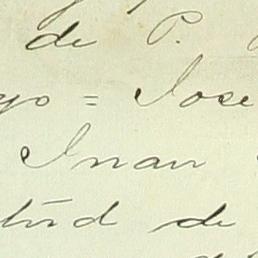 de P.
yo = Jose
Juan
tud de